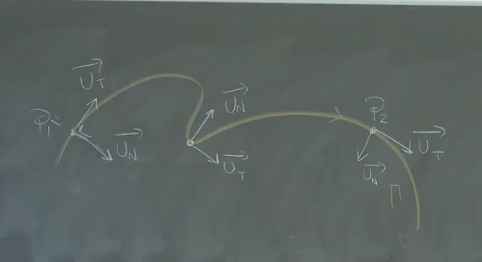 U_T
P_1
U_N
U_N
U_T
P_2
U_T
U_N
Γ